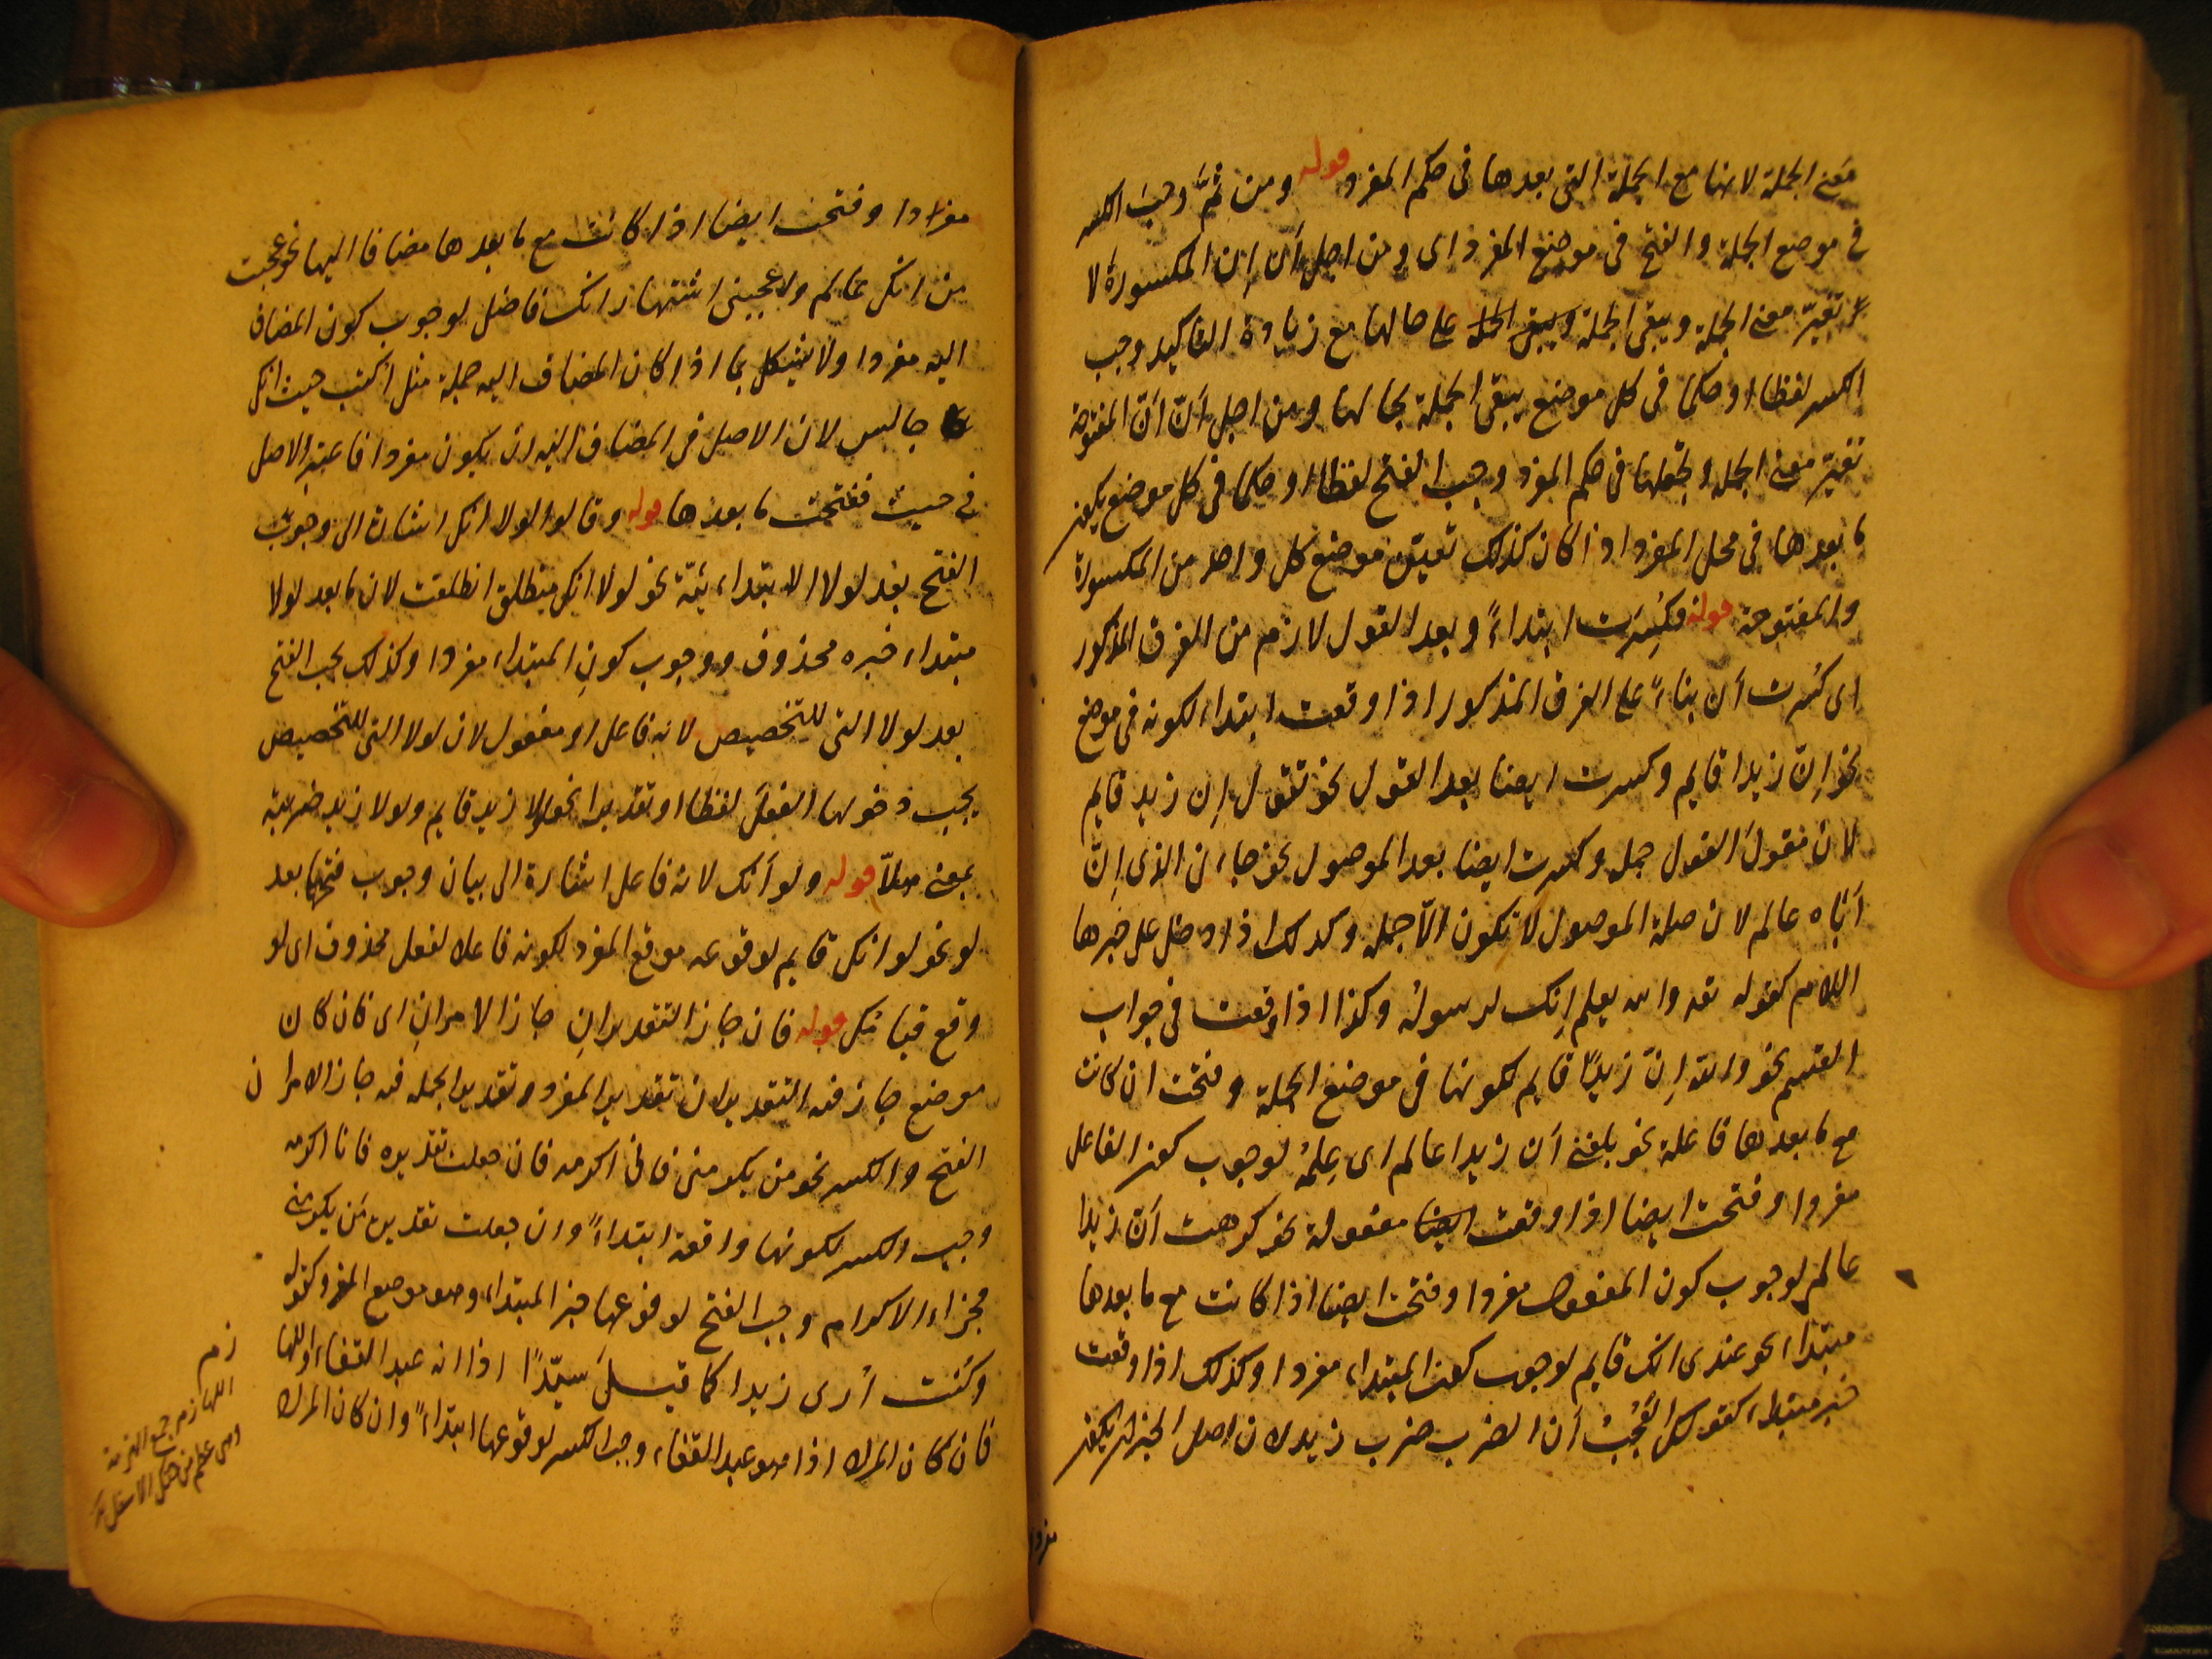 معنى الجملة لانها مع الجملة التى بعدها فى حكم المفرد قوله ومن ثمَّ وجبَ الكسر
فى موضع الجملة والفتح فى موضع المفرد اى ومن اجل أن إن المكسورة لا
تغيّر معنى الجملة ويبقى الجملة ويبقى الجملة على حالها مع زيادة التاكيد وجب
الكسر لفظا او حكما فى كل موضع يبقى الجملة بحالها ومن اجل أنّ أنّ المفتوحة
تغيّر معنى الجملة وتجعلها فى حكم المفرد وجب الفتح لفظا او حكما فى كل موضع يكون
ما بعدها فى محل المفرد اذا كان كذلك تعيّن موضع كل واحد من المكسورة
والمفتوحة قوله فكُسِرَت ابتداءً وبعد القول لازم من الفرق المذكور
اى كُسرت أن بناءً على الفرق المذكور اذا وقعت ابتداء لكونه فى موضع
نحو إنّ زيدا قايم وكسرت ايضا بعد القول نحو تقول إن زيد قايم
لان مقولَ القول جملة وكسرت ايضا بعد الموصول نحو جاءنى الذى إنّ
أباه عالم لان صلة الموصول لا تكون الّا جملة وكذلك اذا دخل على خبرها
اللام كقوله تعه والله يعلم إنك لرسولهُ وكذا اذا وقعت فى جواب
القسم نحو والله إنّ زيدًا قايم لكونها فى موضع الجملة وفتحت ان كانت
مع ما بعدها فاعلة نحو بلغنى أن زيدا عالم اى عِلمُهُ لوجوب كون الفاعل
مفردا وفتحت ايضا اذا وقعت ايضا مفعولة نحو كرهت أن زيدا
عالم لوجوب كون المفعول مفردا وفتحت ايضا اذا كانت مع ما بعدها
مبتداء نحو عندى انك قايم لوجوب كون المبتداء مفردا وكذلك اذا وقعت
خبر مبتداء كقولك أن الضرب ضرب زيد لان اصل الخبر ان يكون
مفردا
مفردا وفتحت ايضا اذا كانت مع ما بعدها مضافا اليها نحو عجبت
من انك عالم واعجبنى اشتهار انك فاضل لوجوب كون المضاف
اليه مفردا ولا يشكل بما اذا كان المضاف اليه جملة مثل اكتب حيث انك
جالس لان الاصل فى المضاف اليه ان يكون مفردا فاعتبر الاصل
فى حيث ففتحت ما بعدها قوله وقالوا لولا انك اشارة الى وجوب
الفتح بعد لولا الابتدائيّة نحو لولا انك منطلق انطلقت لان ما بعد لولا
مبتداء خبره محذوف ووجوب كون المبتداء مفردا وكذلك يجب الفتح
بعد لولا التى للتخصيص لانه فاعل او مفعول لان لولا التى للتخصيص
يجب دخولها الفعلَ لفظا او تقديرا نحو لولا زيد قايم ولولا زيد ضربته
بمعنى هلّا قوله ولو أنك لانه فاعل اشارة الى بيان وجوب فتحها بعد
لو نحو لو انك قايم لوقوعه موقع المفرد لكونه فاعلا لفعل محذوف اى لو
وقع قيامك قوله فان جاز التقديرانِ جاز الامرانِ اى فان كان
موضع جاز فيه التقديران تقدير المفرد وتقدير الجملة فيه جاز الامران
الفتح والكسر نحو من يكرمنى فانى اكرمه فان جعلت تقديره فانا اكرمه
وجب الكسر لكونها واقعة ابتداءً وان جعلت تقديره مَن يكرمنى
فجزاءه الاكرام وجب الفتح لوقوعها خبر المبتداء وهو موضع المفرد كقوله
وكنت أرى زيدا كما قيل سيّدًا اذا انه عبد القفاء واللها
زم
فان كان المراد اذا هو عبد القفاء وجب الكسر لوقوعها ابتداءً وان كان المراد
اللهازم جمع اللهزمة
وهى عظم من الاسفل